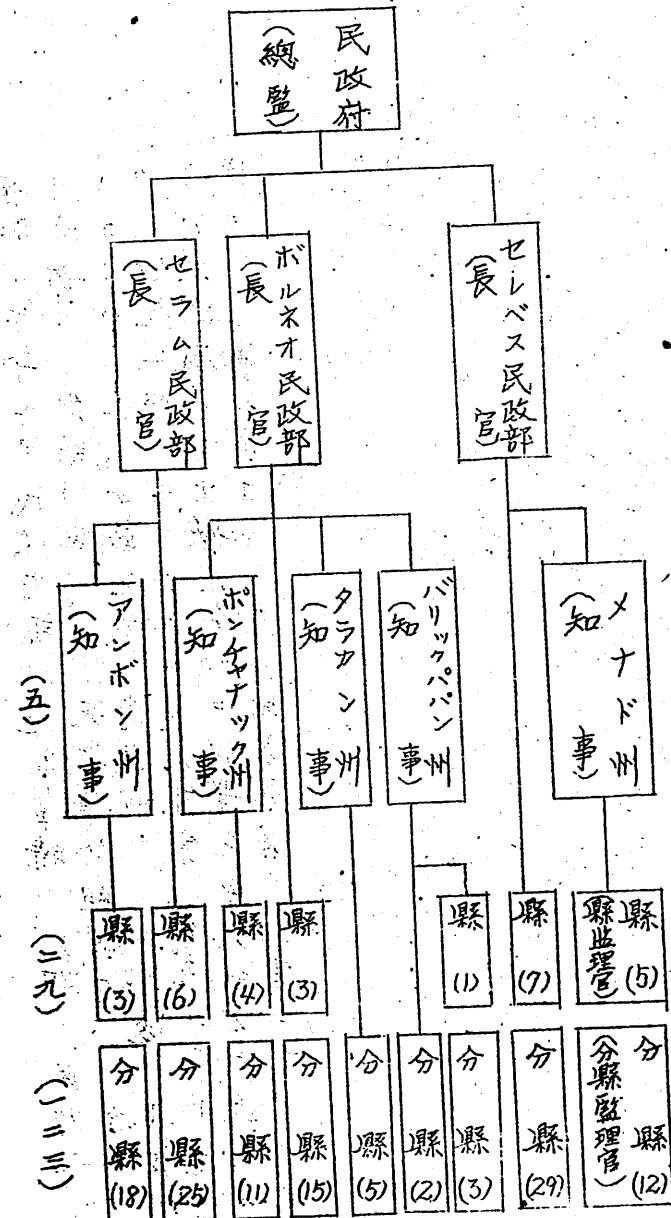 民政府
（總監）
セレベス民政部
（長官）
ボルネオ民政部
（長官）
セラム民政部
（長官）
メナド州
（知事）
バリックパパン州
（知事）
タラカン州
（知事）
ポンチャナック州
（知事）
アンボン州
（知事）
（五）
縣(5)
（縣監理官）
縣(7)
縣(1)
縣(3)
縣(4)
縣(6)
縣(3)
（二九）
分縣(12)
（分縣監理官）
分縣(29)
分縣(3)
分縣(2)
分縣(5)
分縣(15)
分縣(11)
分縣(25)
分縣(18)
（一二三）